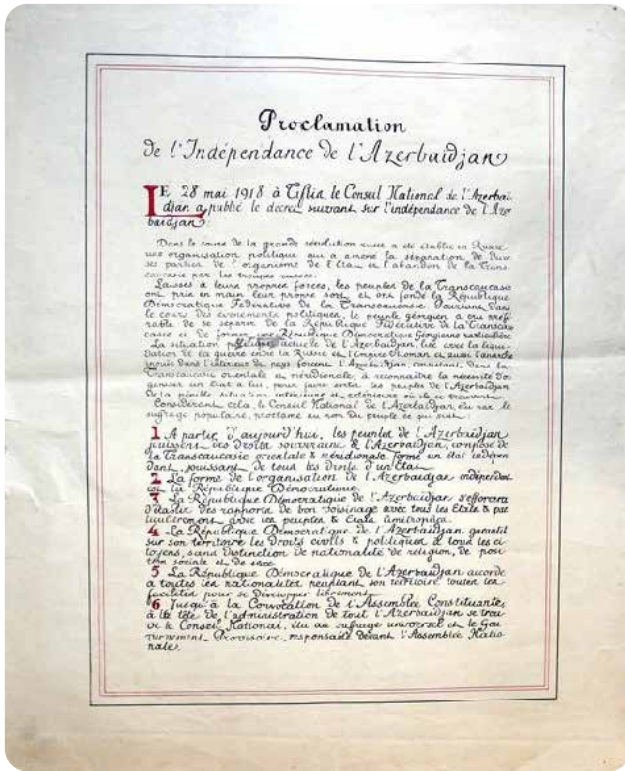 Proclamation
de l'Indépendance de l'Azerbaïdjan
LE 28 mai 1918 à Tiflis le Conseil National de l'Azerbaï-
djan a publié le décret suivant sur l'indépendance de l'Azer
baïdjan:
Dans le cours de la grande révolution russe a été établie en Russie
une organisation politique qui a amené la séparation de
ses parties de l'organisme de l'Etat et l'abandon de la Trans-
caucasie par les troupes russes.
Laissés à leurs propres forces, les peuples de la Transcaucasie
ont pris en main leur propre sort et ont fondé la République
Démocratique Fédérative de la Transcaucasie
le cours des évènements politiques, le peuple géorgien a cru préf-
rable de se séparer de la République Fédérative de la Transcau-
casie et de former une République Démocratique Géorgienne particulière
La situation politique actuelle de l'Azerbaïdjan, liée avec la liqui-
dation de la guerre entre la Russie et l'Empire Otoman et aussi l'anarchie
dans l'intérieur du pays forcent l'Azerbaïdjan, dans la
Transcaucasie orientale et méridionale, à reconnaître la nécessité d'o-
ganiser un Etat à lui, pour faire sortir les peuples de l'Azerbaïdjan
de la pénible situation intérieure et extérieure où ils se trouvent.
Considérant cela, le Conseil National de l'Azerbaïdjan, élu par le
suffrage populaire, proclame au nom du peuple ce qui suit:
1 A partir d'aujourd'hui, les peuples de l'Azerbaïdjan
jouissent des droits souverains & l'Azerbaïdjan, composé de
la Transcaucasie orientale & méridionale forme un état indépen
dant, jouissant de tous les droits d'un Etat.
2 La forme de l'organisation de l'Azerbaïdjan indépendant
est la République Démocratique.
3 La République Démocratique de l'Azerbaïdjan s'efforcera
d'établir des rapports de bon voisinage avec tous les Etats & par
ticulièrement avec les peuples & Etats limitrophes.
4 La République Démocratique de l'Azerbaïdjan garantit
sur son territoire les droits civils & politiques à tous les ci-
toyens, sans distinction de nationalité de religion, de posi
tion sociale et de sexe
5 La République Démocratique de l'Azerbaïdjan accorde
à toutes les nationalités peuplant son territoire toutes les
facilités pour se développer librement
6 Jusqu'à la Convocation de l'Assemblée Constituante,
à la tête de l'administration de tout l'Azerbaïdjan se trou
ve le Conseil National, élu au suffrage universel et le Gou
vernement Provisoire, responsable devant l'Assemblée Natio-
nale.